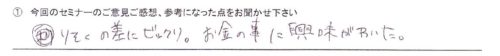 ① 今回のセミナーのご意見ご感想、参考になった点をお聞かせ下さい
りそくの差にビックリ。お金の事に興味がわいた。